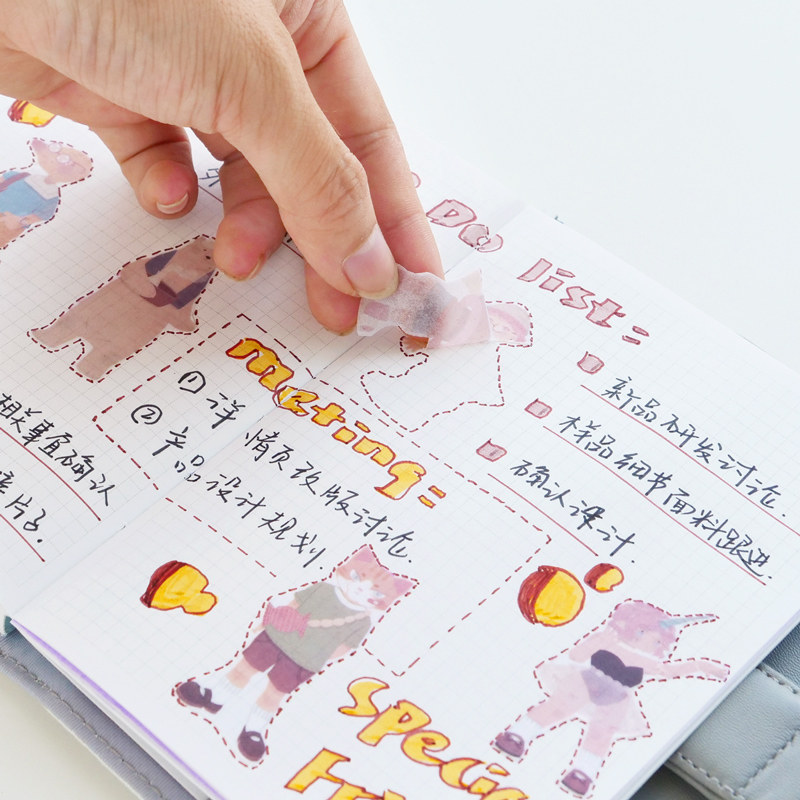 Do list:
新品研发讨论.
样品细节面料跟进.
确认设计.
meting:
①详情页改版讨论.
②产品设计规划.
相关事宜确认
Special